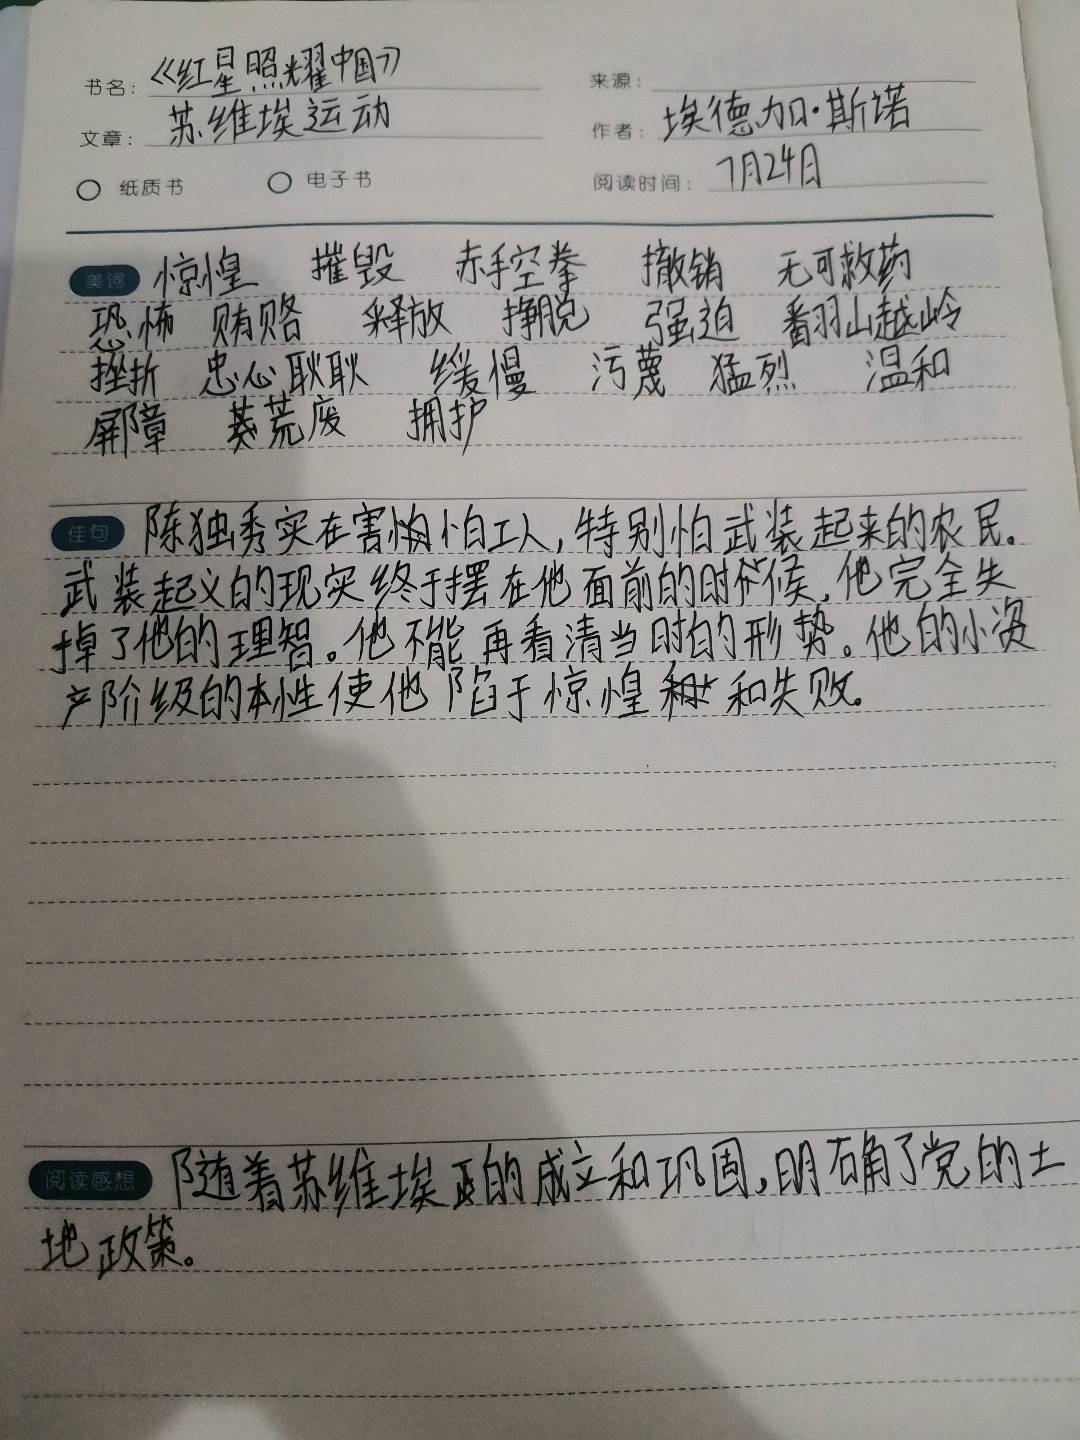 书名：《红星照耀中国》
来源：
文章：苏维埃运动
作者：埃德加·斯诺
纸质书 电子书
阅读时间：7月24日
美词 惊惶 摧毁 赤手空拳 撤销 无可救药
恐怖 贿赂 释放 挣脱 强迫 翻山越岭
挫折 忠心耿耿 缓慢 污蔑 猛烈 温和
屏障 荒废 拥护
佳句 陈独秀实在害怕工人，特别怕武装起来的农民。
武装起义的现实终于摆在他面前的时候，他完全失
掉了他的理智。他不能再看清当时的形势。他的小资
产阶级的本性使他陷于惊惶和失败。
阅读感想 随着苏维埃的成立和巩固，明确了党的土
地政策。